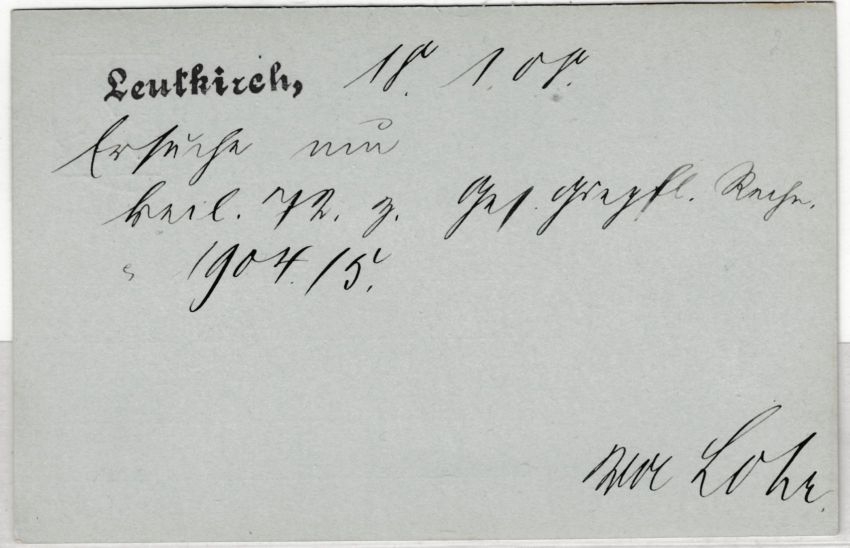 Leutkirch, 18. 1. 08.
Ersuche um
beil. 72. z. Ges. Rechn.
" 1904./5.
Lohr.